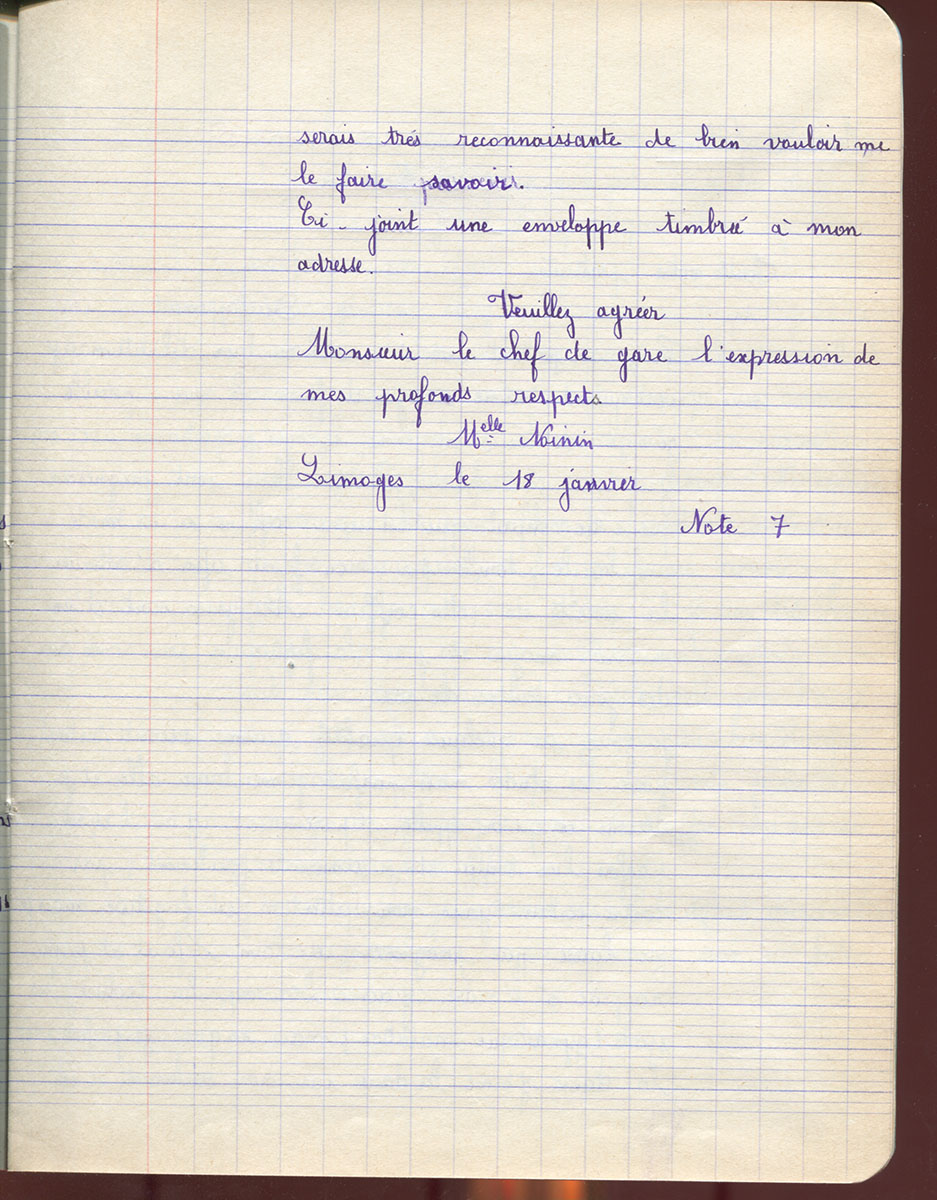 serais trés reconnaissante de bien vouloir me
le faire savoir.
Ci-joint une enveloppe timbré à mon
adresse.
Veuillez agréer
Monsieur le chef de gare l'expression de
mes profonds respects
Melle Noinin
Limoges le 18 janvier
Note 7